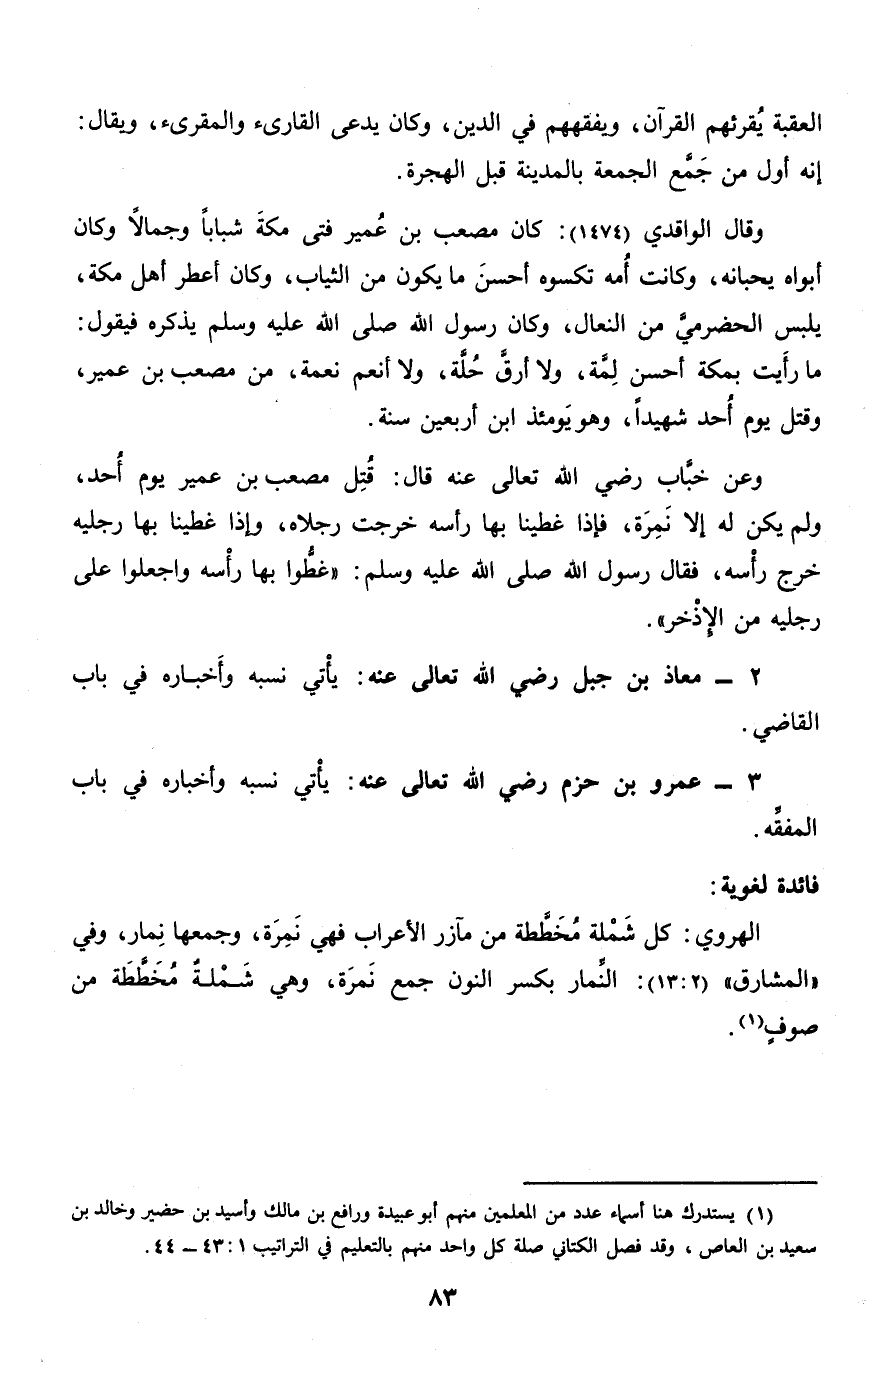 العقبة يُقرئهم القرآن، ويفقههم في الدين، وكان يدعى القارىء والمقرىء، ويقال:
إنه أول من جَمَّع الجمعة بالمدينة قبل الهجرة.
وقال الواقدي (١٤٧٤): كان مصعب بن عُمير فتى مكةَ شباباً وجمالاً وكان
أبواه يحبانه، وكانت أُمه تكسوه أحسنَ ما يكون من الثياب، وكان أعطر أهل مكة،
يلبس الحضرميَّ من النعال، وكان رسول الله صلى الله عليه وسلم يذكره فيقول:
ما رأَيت بمكة أحسن لِمَّة، ولا أرقَّ حُلَّة، ولا أنعم نعمة، من مصعب بن عمير،
وقتل يوم أُحد شهيداً، وهو يَومئذ ابن أربعين سنة.
وعن خبَّاب رضي الله تعالى عنه قال: قُتِل مصعب بن عمير يوم أُحد،
ولم يكن له إلا نَمِرَة، فإذا غطينا بها رأسه خرجت رجلاه، وإذا غطينا بها رجليه
خرج رأْسه، فقال رسول الله صلى الله عليه وسلم: «غطُّوا بها رأْسه واجعلوا على
رجليه من الإِذْخر».
٢ ــ معاذ بن جبل رضي الله تعالى عنه: يأْتي نسبه وأَخباره في باب
القاضي.
٣ ــ عمرو بن حزم رضي الله تعالى عنه: يأْتي نسبه وأخباره في باب
المفقِّه.
فائدة لغوية:
الهروي: كل شَمْلة مُخَطَّطة من مآزر الأعراب فهي نَمِرَة، وجمعها نِمار، وفي
«المشارق» (١٣:٢): النِّمار بكسر النون جمع نَمرَة، وهي شَمْلةٌ مُخَطَّطَة من
صوفٍ(١).
(١) يستدرك هنا أسماء عدد من المعلمين منهم أبو عبيدة ورافع بن مالك وأسيد بن حضير وخالد بن
سعيد بن العاص، وقد فصل الكتاني صلة كل واحد منهم بالتعليم في التراتيب ١: ٤٣ ــ ٤٤.
٨٣